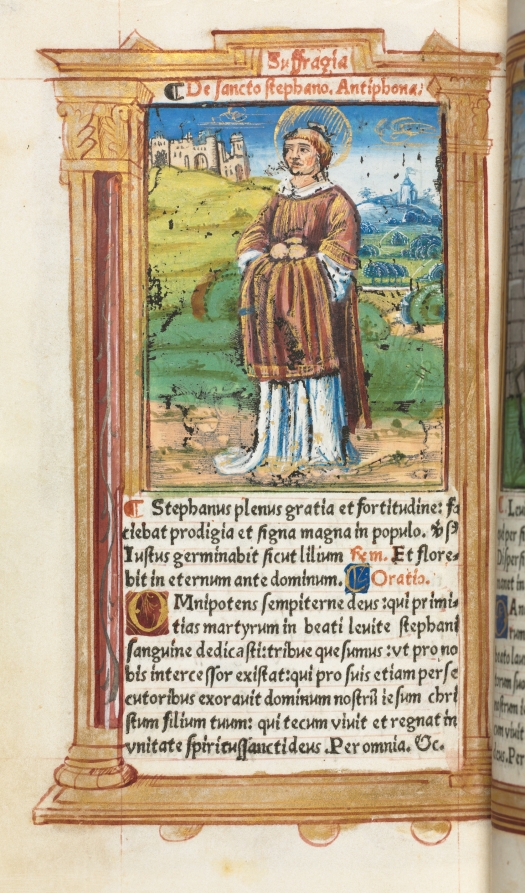 Suffragia
¶ De sancto stephano. Antiphona.
¶ Stephanus plenus gratia et fortitudine: fa
ciebat prodigia et signa magna in populo. ṽſ
Iustus germinabit sicut lilium Rem. Et flore-
bit in eternum ante dominum. Oratio.
OMnipotens sempiterne deus: qui primi-
tias martyrum in beati leuite stephani
sanguine dedicasti: tribue quesumus: vt pro no
bis intercessor existat: qui pro suis etiam perse
cutoribus exorauit dominum nostrũ iesum chri
stum filium tuum: qui tecum viuit et regnat in
vnitate spiritussancti deus. Per omnia. &c.